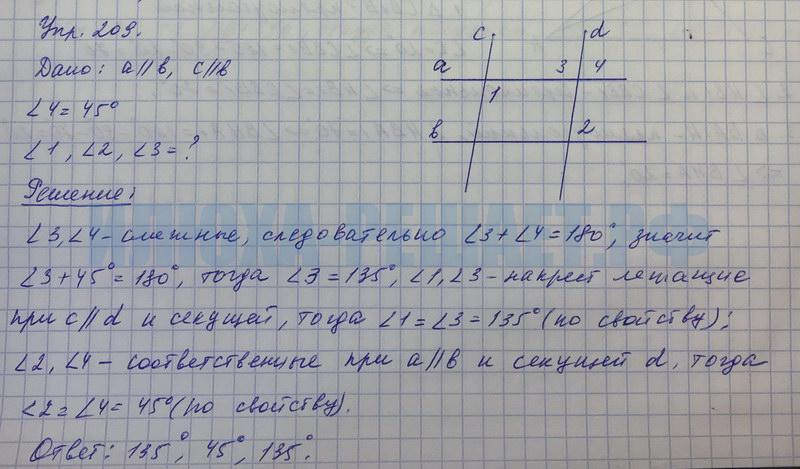 Упр. 209.
Дано: a∥b, c∥b
∠4 = 45°
∠1, ∠2, ∠3 = ?
c d
a 3 4
1
b 2
Решение:
ИЛЮХА-РЕШАЕТ.РФ
∠3, ∠4 – смежные, следовательно ∠3 + ∠4 = 180°, значит
∠3 + 45° = 180°, тогда ∠3 = 135°, ∠1, ∠3 – накрест лежащие
при c∥d и секущей, тогда ∠1 = ∠3 = 135° (по свойству);
∠2, ∠4 – соответственные при a∥b и секущей d, тогда
∠2 = ∠4 = 45° (по свойству).
Ответ: 135°, 45°, 135°.